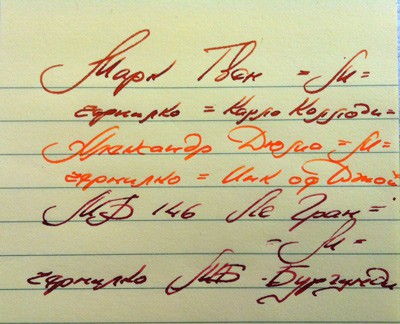 Марк Твен = М =
чернилко = Карло Коллоди =
Александр Дюма = М =
чернилко = Инк оф Джой
МБ 146 Ле Гран =
= М =
чернилко МБ - Бургунди